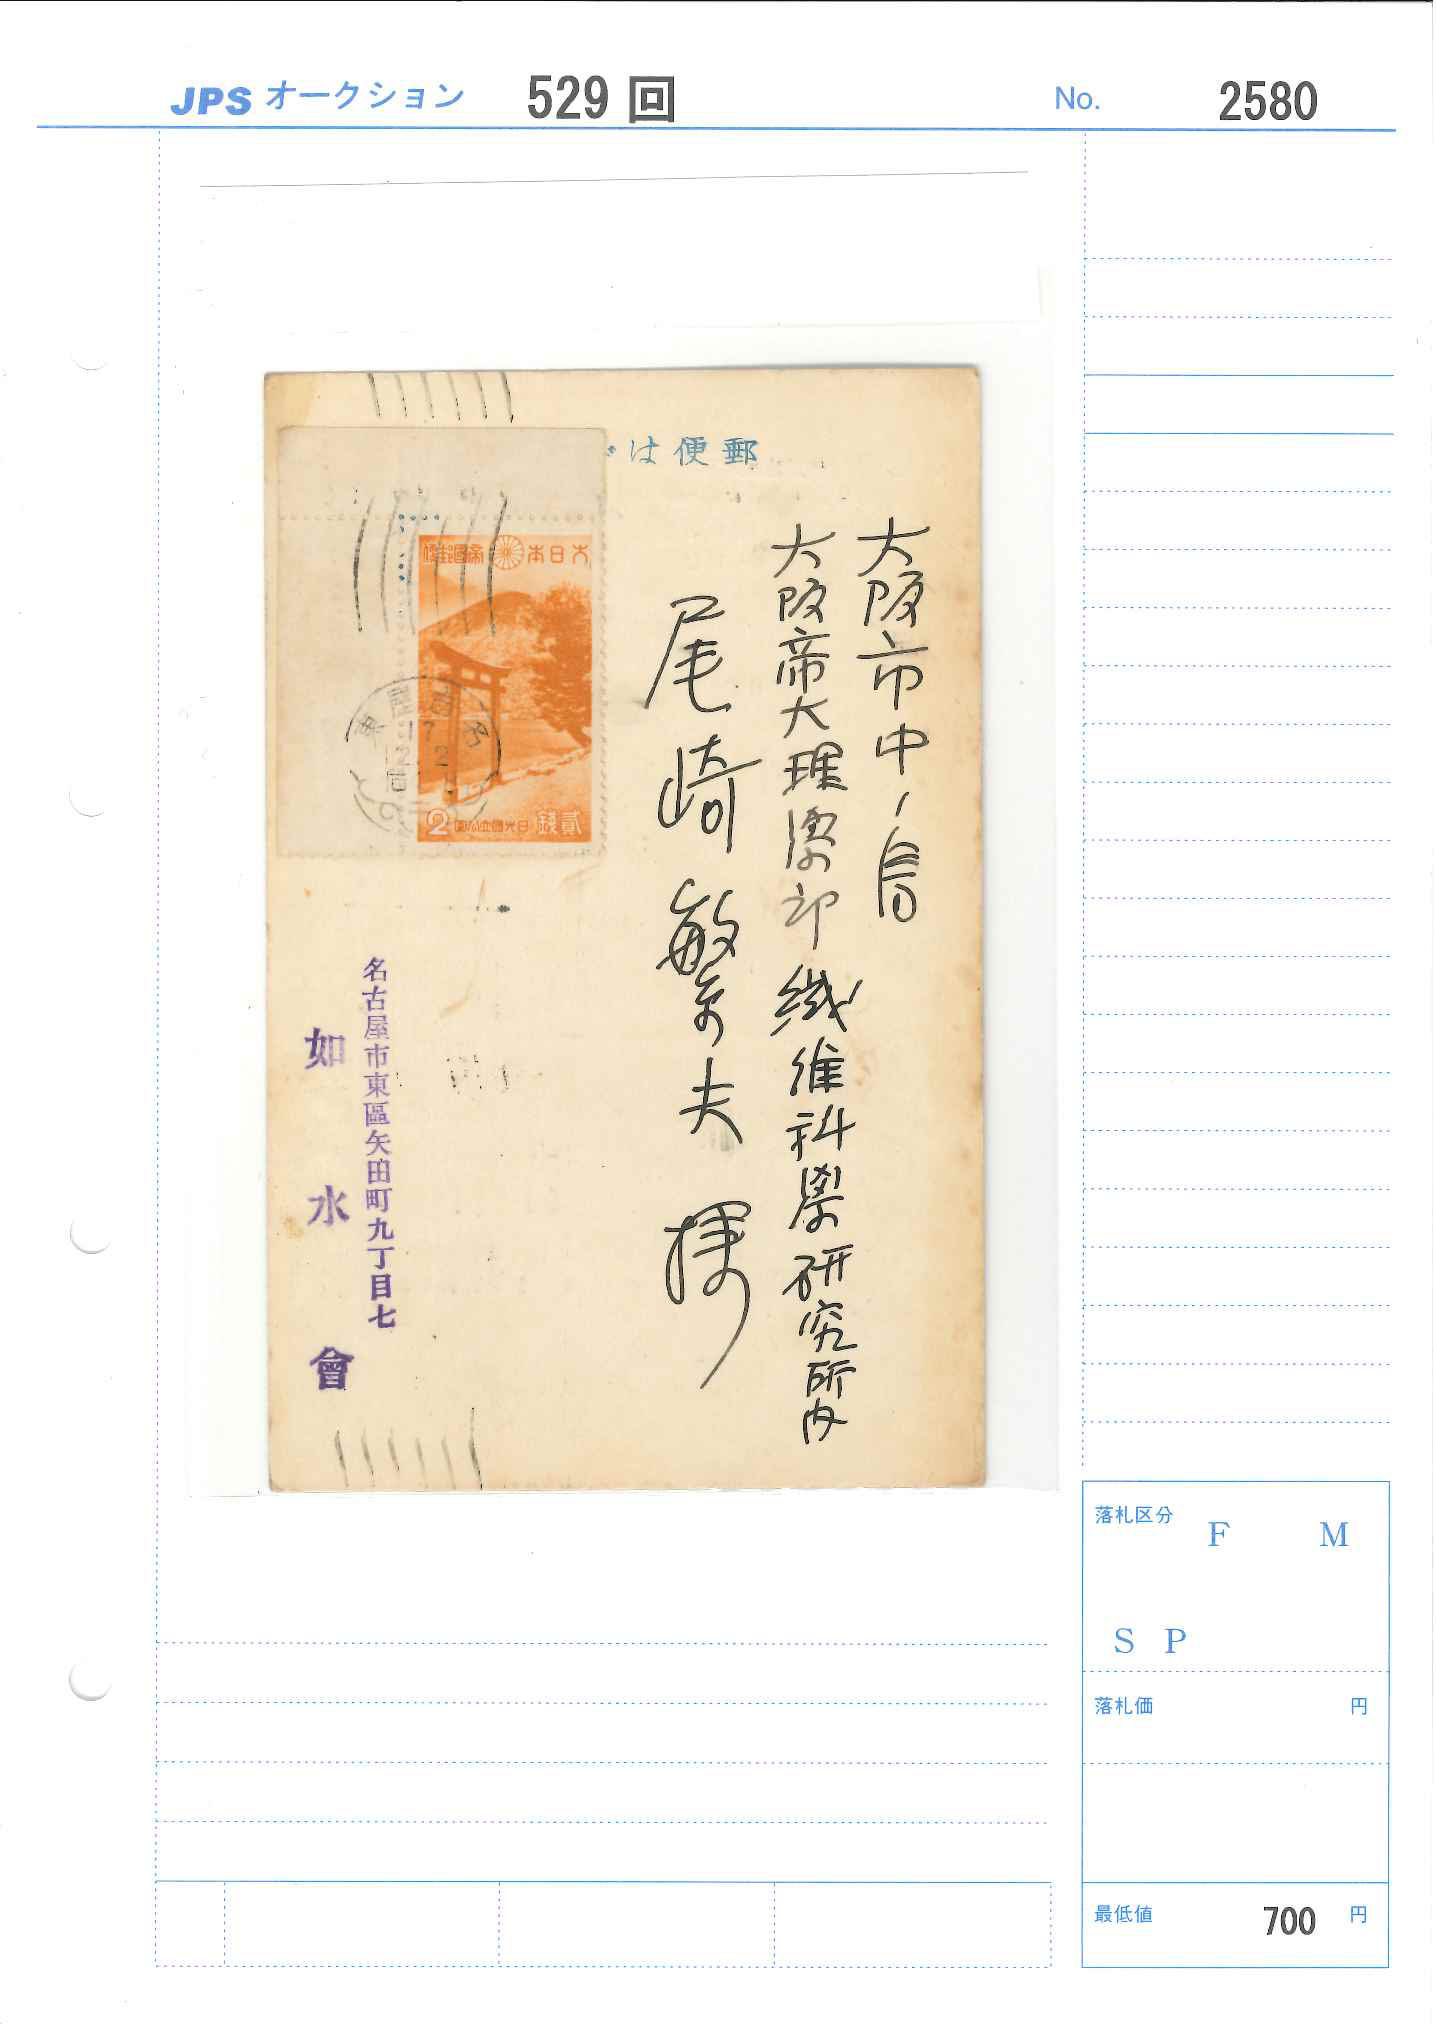 JPS オークション 529 回 No. 2580
郵便は
大日本帝國郵便
日光國立公園
貳錢
2
名古屋
17
大阪市中ノ島
大阪帝大理學部 繊維科學研究所内
尾崎繁夫様
名古屋市東區矢田町九丁目七
如水會
落札区分 F M
S P
落札価 円
最低値 700 円